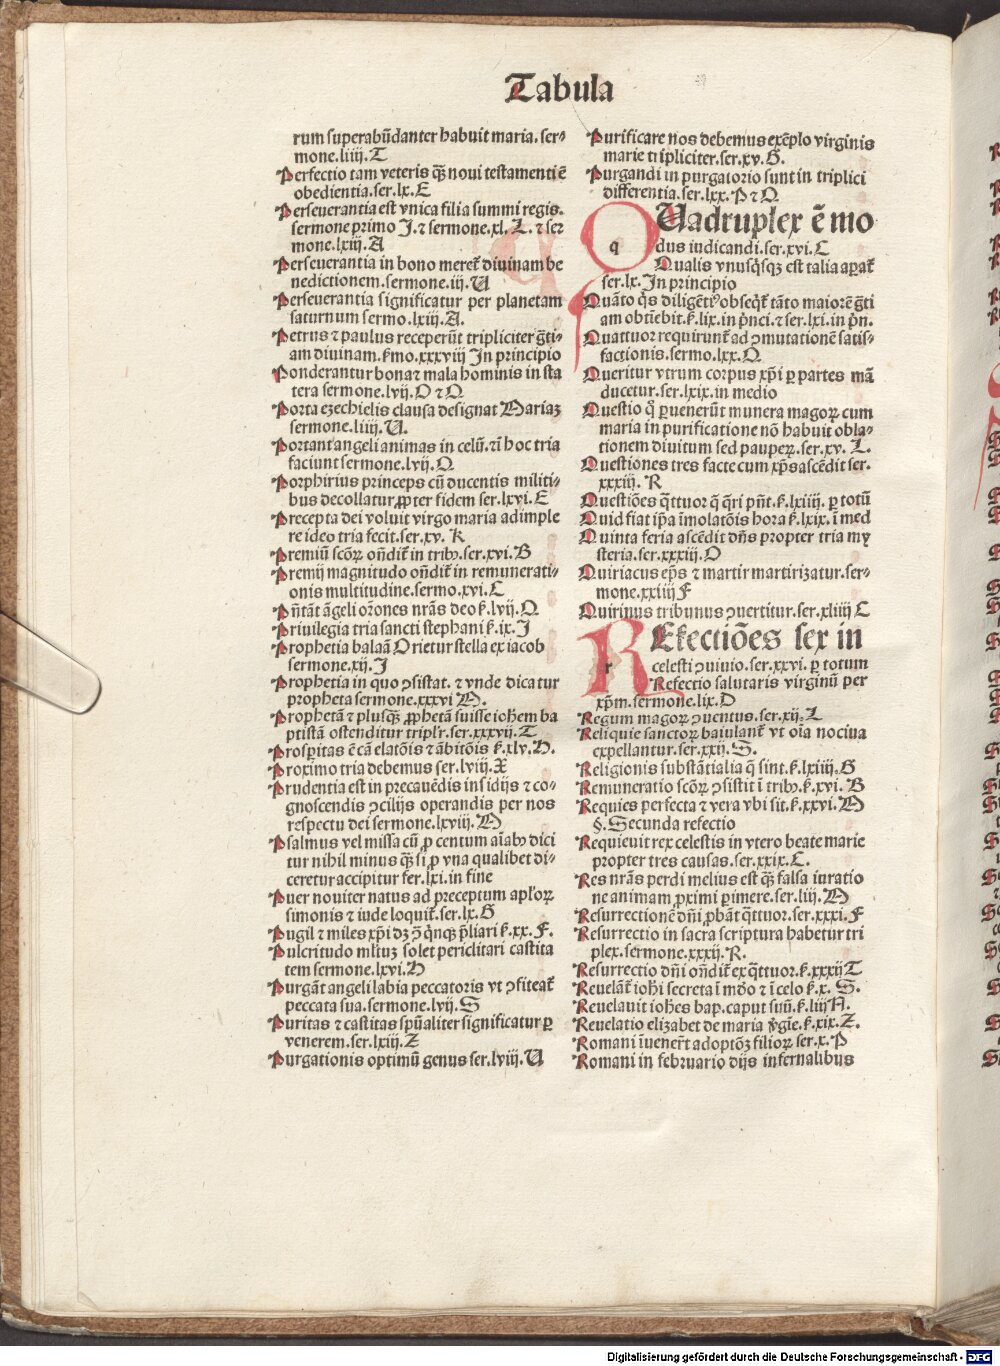 Tabula
rum superabūdanter habuit maria. ser-
mone.liiii.T
Perfectio tam veteris q̃ꝫ noui testamenti ē
obedientia.ser.lx.E
Perseuerantia est vnica filia summi regis.
sermone primo I.⁊ sermone.xl. L. ⁊ ser
mone.lxiii.A
Perseuerantia in bono meret᷑ diuinam be
nedictionem.sermone.iii.U
Perseuerantia significatur per planetam
saturnum sermo.lxiii.A.
Petrus ⁊ paulus receperūt tripliciter g̃ti-
am diuinam. ẜmo.xxxviii In principio
Ponderantur bona ⁊ mala hominis in sta
tera sermone.lvij.O ⁊ Q
Porta ezechielis clausa designat Mariaꝫ
sermone.liiii.U.
Portant angeli animas in celū.⁊ī hoc tria
faciunt sermone.lvij.Q
Porphirius princeps cū ducentis militi-
bus decollatur ꝓpter fidem ser.lxvi.E
Precepta dei voluit virgo maria adimple
re ideo tria fecit.ser.xv. K
Premiū scōꝝ on̄dit᷑ in tribꝰ.ser.xvi.B
Premij magnitudo on̄dit᷑ in remunerati-
onis multitudine.sermo.xvi.C
Pn̄tāt āgeli or̄ones nr̄as deo ẜ.lvij.Q
Priuilegia tria sancti stephani ẜ.ix.I
Prophetia balaā Orietur stella ex iacob
sermone.xij.I
Prophetia in quo ꝯsistat. ⁊ vnde dicatur
propheta sermone.xxxvi M.
Prophetā ⁊ plusq̃ꝫ ꝓphetā fuisse ioh̄em ba
ptistā ostenditur tripl'r.ser.xxxvij.T
Prosp̱itas ē cā elatōis ⁊ ābitōis ẜ.xlv.H.
Proximo tria debemus ser.lviij.X
Prudentia est in precauēdis insidijs ⁊ co-
gnoscendis ꝯcilijs operandis per nos
respectu dei sermone.lxviii.M
Psalmus vel missa cū ꝓ centum aīabꝰ dici
tur nihil minus q̃ꝫ si ꝓ vna qualibet di-
ceretur accipitur ser.lxi.in fine
Puer nouiter natus ad preceptum apl'oꝝ
simonis ⁊ iude loquit᷑.ser.lx.G
Pugil ⁊ miles xp̄i dꝫ ꝯ q̇nqꝫ p̄liari ẜ.xx. F.
Pulcritudo ml'tuꝫ solet periclitari castita
tem sermone.lxvi.H
Purgāt angeli labia peccatoris vt ꝯfiteat᷑
peccata sua.sermone.lvij.S
Puritas ⁊ castitas spūaliter significatur ꝑ
venerem.ser.lxiij.Z
Purgationis optimū genus ser.lviij.U
Purificare nos debemus exēplo virginis
marie tripliciter.ser.xv.G.
Purgandi in purgatorio sunt in triplici
differentia.ser.lxx.P ⁊ Q
QUadruplex ē mo
q
dus iudicandi.ser.xvi.C
Qualis vnusq̇sqꝫ est talia aꝑat᷑
ser.lx.In principio
Quāto q̇s diligēti' obseq̇t᷑ tāto maiorē g̃ti
am obtīebit.ẜ.lix.in p̄nci.⁊ ser.lxi.in p̄n.
Quattuor requirunt᷑ ad ꝯmutationē satis-
factionis.sermo.lxx.Q
Queritur vtrum corpus xp̄i ꝑ partes mā
ducetur.ser.lxix.in medio
Questio q̇ ꝑuenerūt munera magoꝝ cum
maria in purificatione nō habuit obla-
tionem diuitum sed pauperꝝ.ser.xv. L.
Questiones tres facte cum xp̄s ascēdit ser.
xxxiij. R
Questiōes q̃ttuor q̄ q̄ri pn̄t.ẜ.lxiiii. ꝑ totū
Quid fiat ip̄a īmolatōis hora ẜ.lxix.ī med
Quinta feria ascēdit dn̄s propter tria my
steria.ser.xxxiij.O
Quiriacus ep̄s ⁊ martir martirizatur.ser-
mone.xxiiij F
Quirinus tribunus ꝯuertitur.ser.xliiij C
REfectiōes sex in
r
celesti ꝯuiuio.ser.xxvi. ꝑ totum
Refectio salutaris virginū per
xp̄m.sermone.lix.D
Regum magoꝝ ꝯuentus.ser.xij.L
Reliquie sanctoꝝ baiulant᷑ vt oīa nociua
expellantur.ser.xxij.S.
Religionis substātialia q̄ sint.ẜ.lxiiij.G
Remuneratio scōꝝ ꝯsistit ī tribꝰ.ẜ.xvi. B
Requies perfecta ⁊ vera vbi sit.ẜ.xxvi.M
§.Secunda refectio
Requieuit rex celestis in vtero beate marie
propter tres causas.ser.xxix.C.
Res nr̄as perdi melius est q̃ꝫ falsa iuratio
ne animam ꝓximi ꝑimere.ser.liij.M
Resurrectionē dn̄i ꝓbāt q̃ttuor.ser.xxxi.F
Resurrectio in sacra scriptura habetur tri
plex.sermone.xxxij.R.
Resurrectio dn̄i on̄dit᷑ ex q̃ttuor.ẜ.xxxij T
Reuelāt᷑ ioh̄i secreta ī mūdo ⁊ ī celo ẜ.x. S.
Reuelauit ioh̄es bap. caput suū.ẜ.liij A.
Reuelatio elizabet de maria v̄gīe.ẜ.xix.Z.
Romani īuener̄t adoptōꝫ filioꝝ ser.x.P
Romani in februario dijs infernalibus
Digitalisierung gefördert durch die Deutsche Forschungsgemeinschaft - DFG